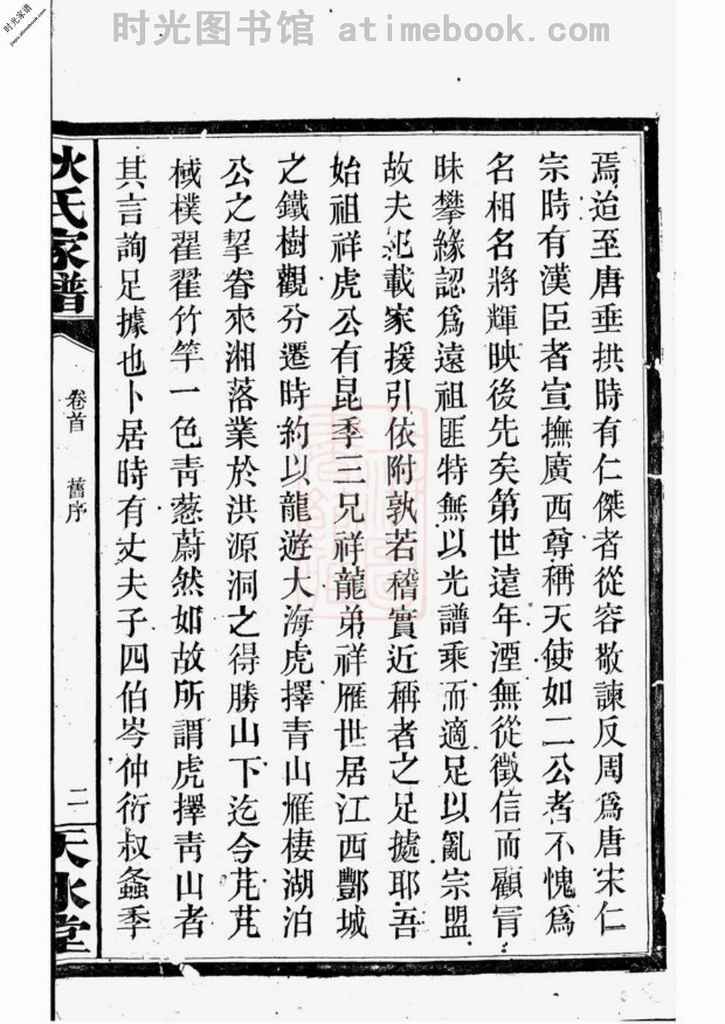 时光图书馆 atimebook.com
时光家谱
焉迨至唐垂拱時有仁傑者從容敬諫反周爲唐宋仁
宗時有漢臣者宣撫廣西尊稱天使如二公者不愧爲
名相名將輝映後先矣第世遠年湮無從徵信而顧冐
昧攀緣認爲遠祖匪特無以光譜乘而適足以亂宗盟
故夫汜載家援引依附孰若稽實近稱者之足據耶吾
始祖祥虎公有昆季三兄祥龍弟祥雁世居江西酆城
之鐵樹觀分遷時約以龍遊大海虎擇青山雁棲湖泊
公之挈眷來湘落業於洪源洞之得勝山下迄今芃芃
棫樸翟翟竹竿一色靑蔥蔚然如故所謂虎擇靑山者
其言詢足據也卜居時有丈夫子四伯岑仲衍叔螽季
狄氏家譜
卷首 舊序
二
天水堂